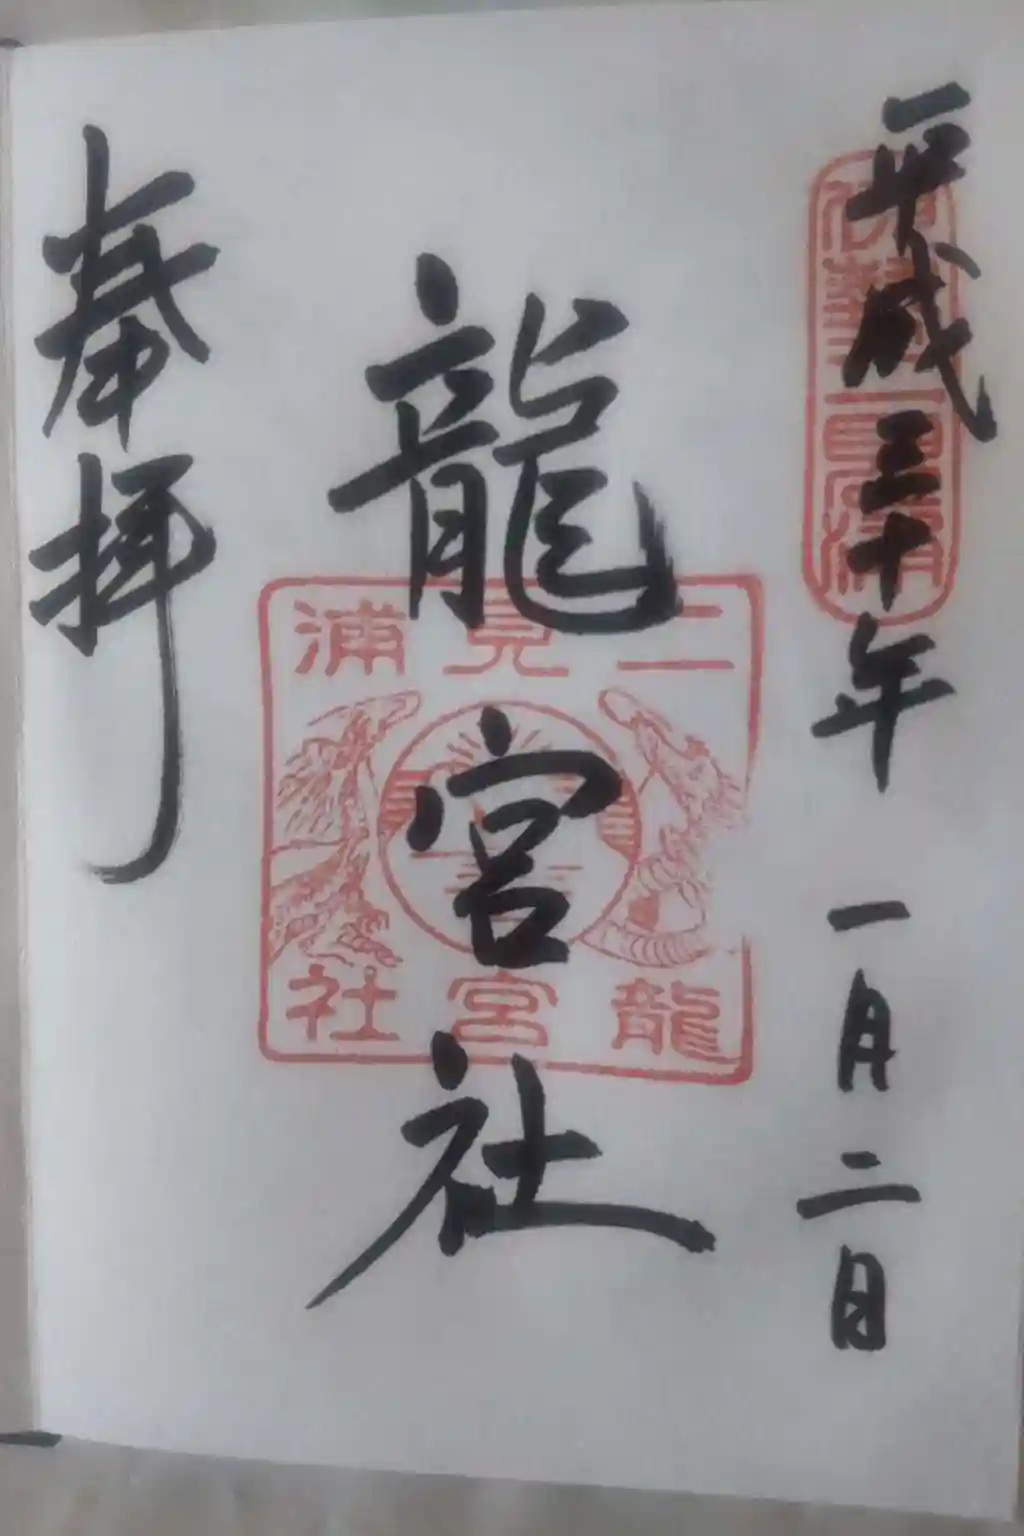 平成三十年 一月二日
伊勢二見浦
龍宮社
二見浦
龍宮社
奉拝